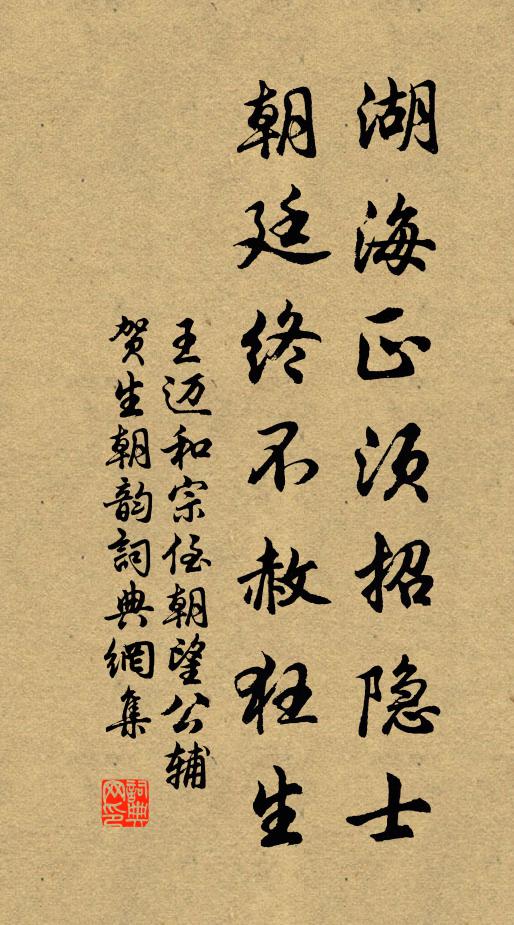 湖海正须招隐士
朝廷终不赦狂生
王迈和宗侄朝望公辅
贺生朝韵詞典網集
詞典网印